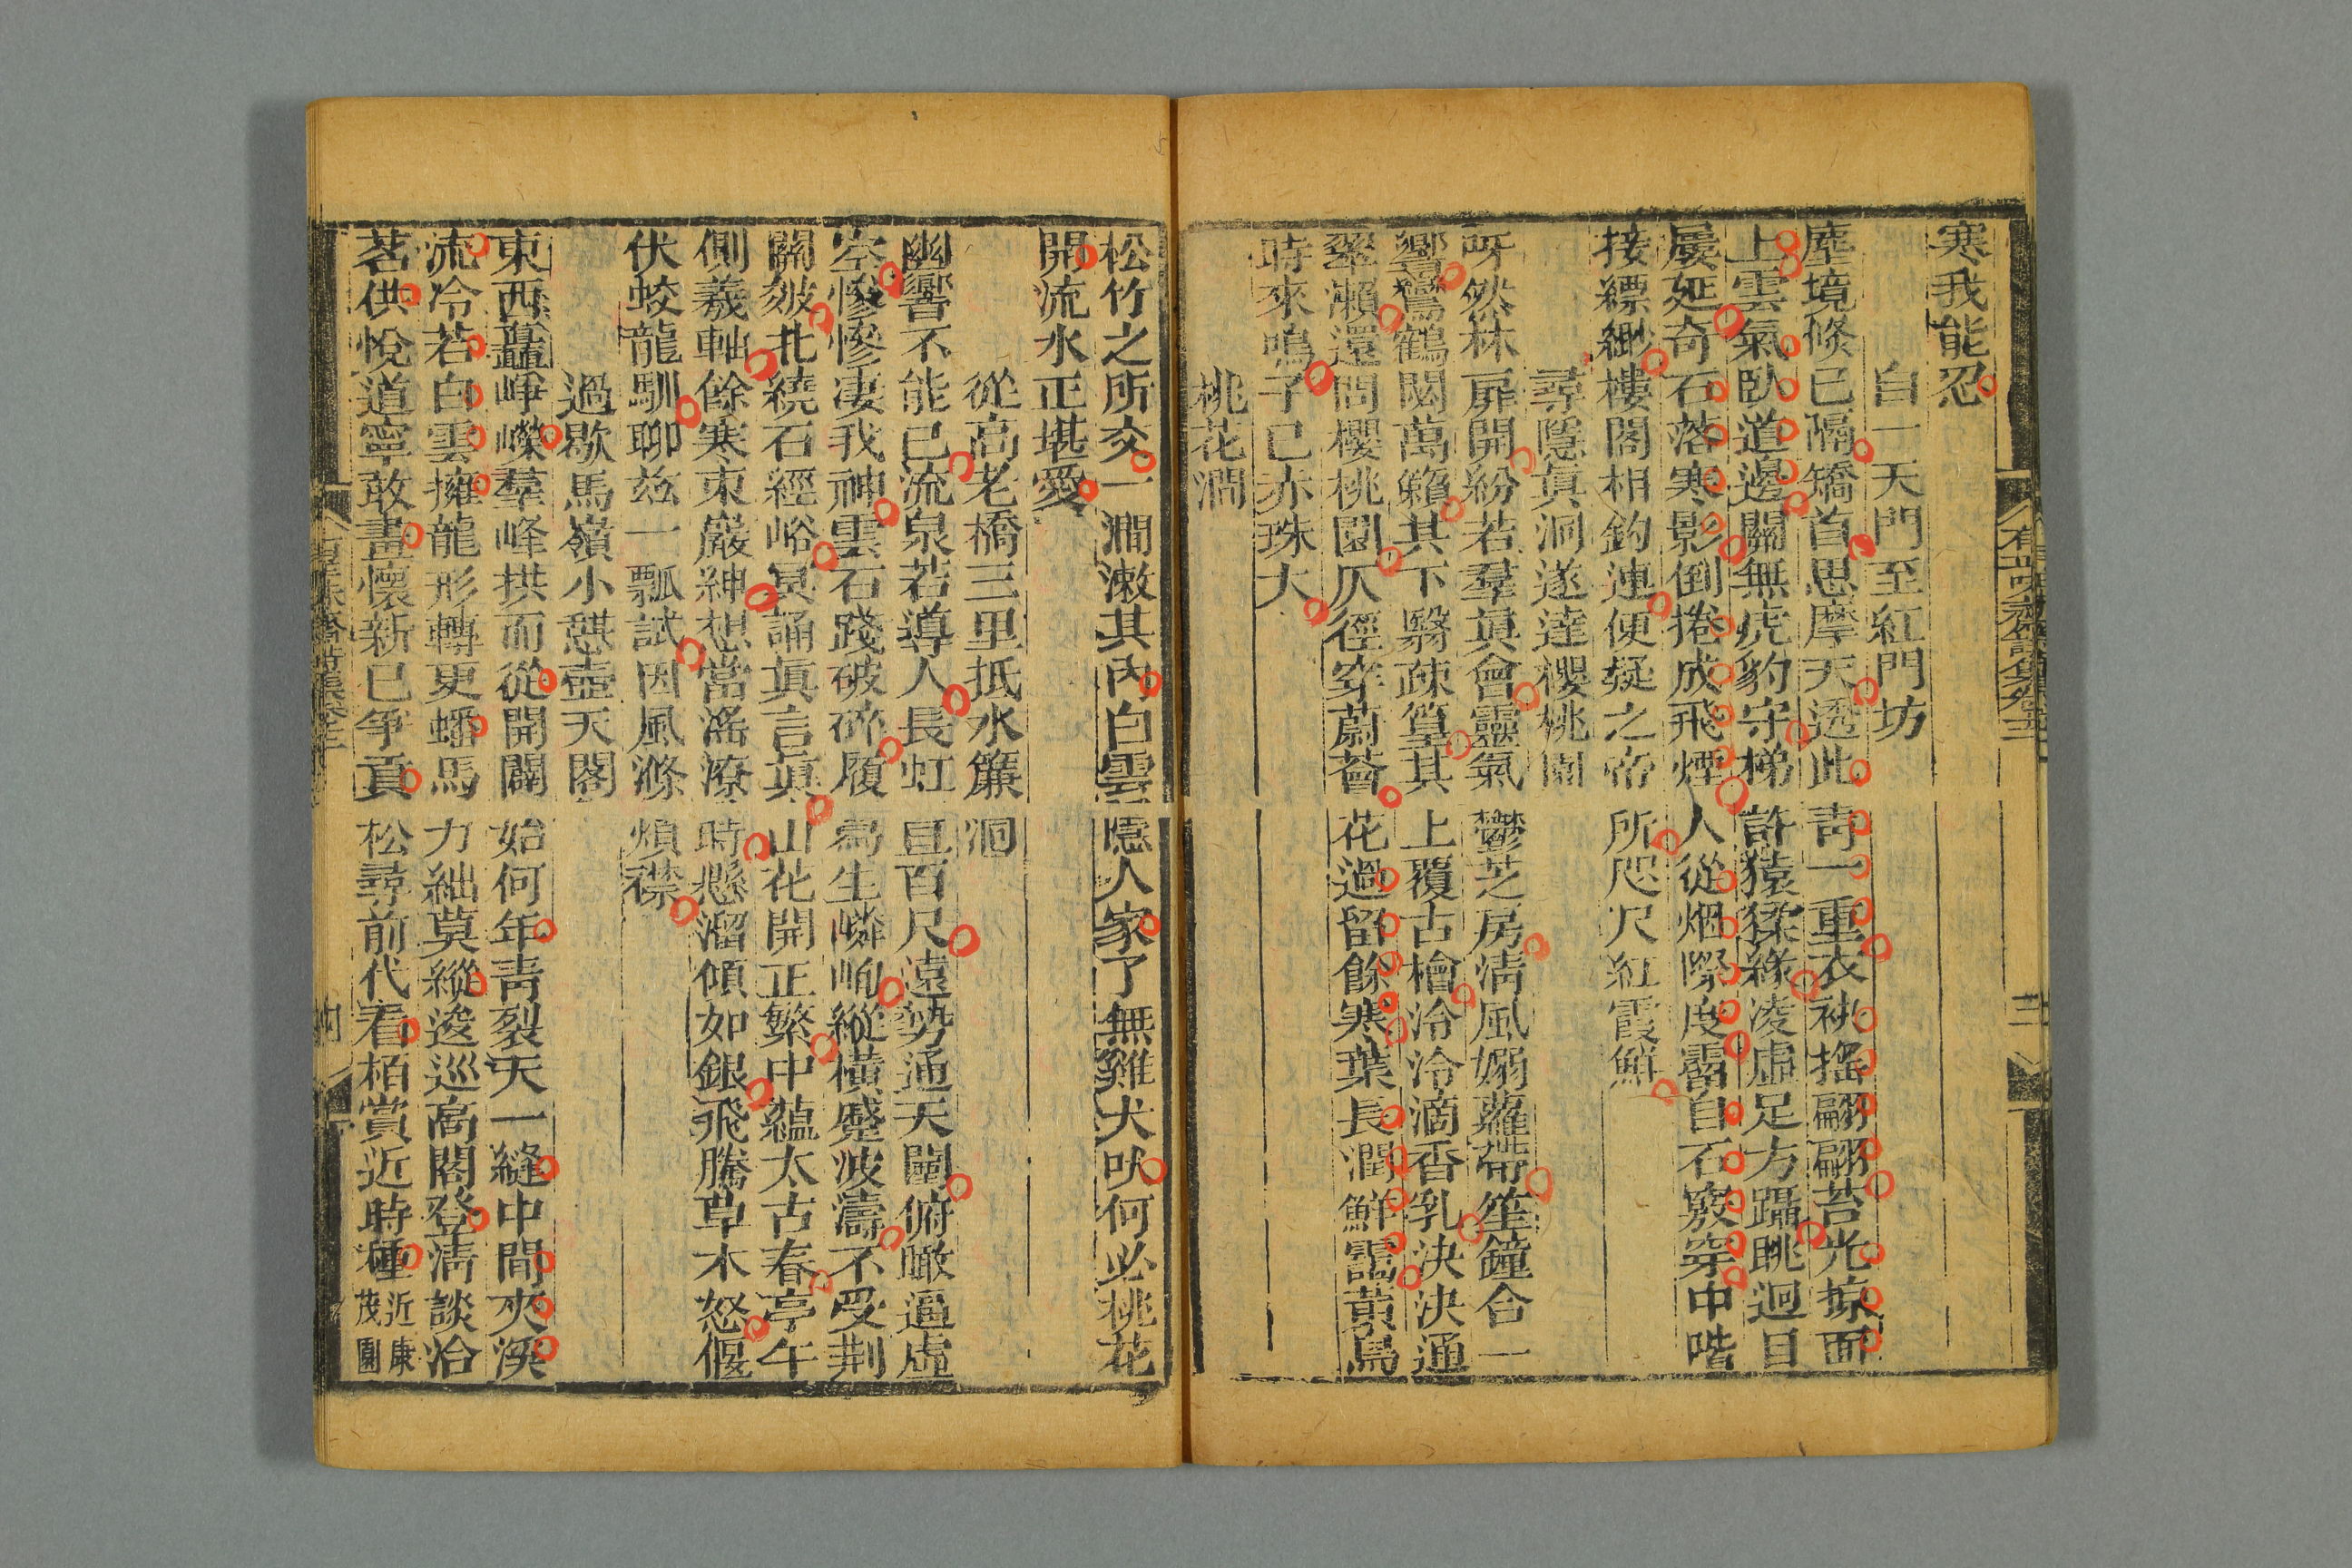 寒我能忍
自一天門至紅門坊
塵境倐已隔矯首思摩天透此青一重衣袂搖翩翩苔光掠面
上雲氣臥道邊關無虎豹守梯許猿猱緣凌虛足方躡眺迴目
屡延奇石落寒影倒捲成飛煙人從烟際度霤自石竅穿中喈
接縹緲樓閣相鈎連便疑之帝所咫尺紅霞鮮
尋隱眞洞遂達櫻桃園
呀然林扉開紛若羣眞會靈氣鬱芝房淸風嫋蘿帶笙鐘合一
響鸞鶴閟萬籟其下翳疎篁其上覆古檜泠泠滴香乳決決通
翠瀨還問櫻桃園仄徑穿蔚薈花過留餘寒葉長潤鮮靄黃鳥
時來鳴子已赤珠大
桃花澗
松竹之所交一澗漱其內白雲隱人家了無雞犬吠何必桃花
開流水正堪愛
從高老橋三里抵水簾洞
幽響不能已流泉若導人長虹亘百尺遠勢通天闉俯瞰逼虛
空慘慘凄我神雲石踐破碎履爲生嶙峋縱橫蹙波濤不受荆
關皴北繞石經峪冥誦眞言眞山花開正繁中蘊太古春亭午
側羲軸餘寒束巖紳想當滛潦時懸溜傾如銀飛騰草木怒偃
伏蛟龍馴聊兹一瓢試因風滌煩襟
過歇馬嶺小憇壺天閣
東西矗崢嶸羣峰拱而從開闢始何年靑裂天一縫中間夾溪
流冷若白雲擁龍形轉更蟠馬力絀莫縱逡巡高閣登淸談洽
茗供悅道寧敢畫懷新已爭貢松尋前代看栢賞近時種近康茂園